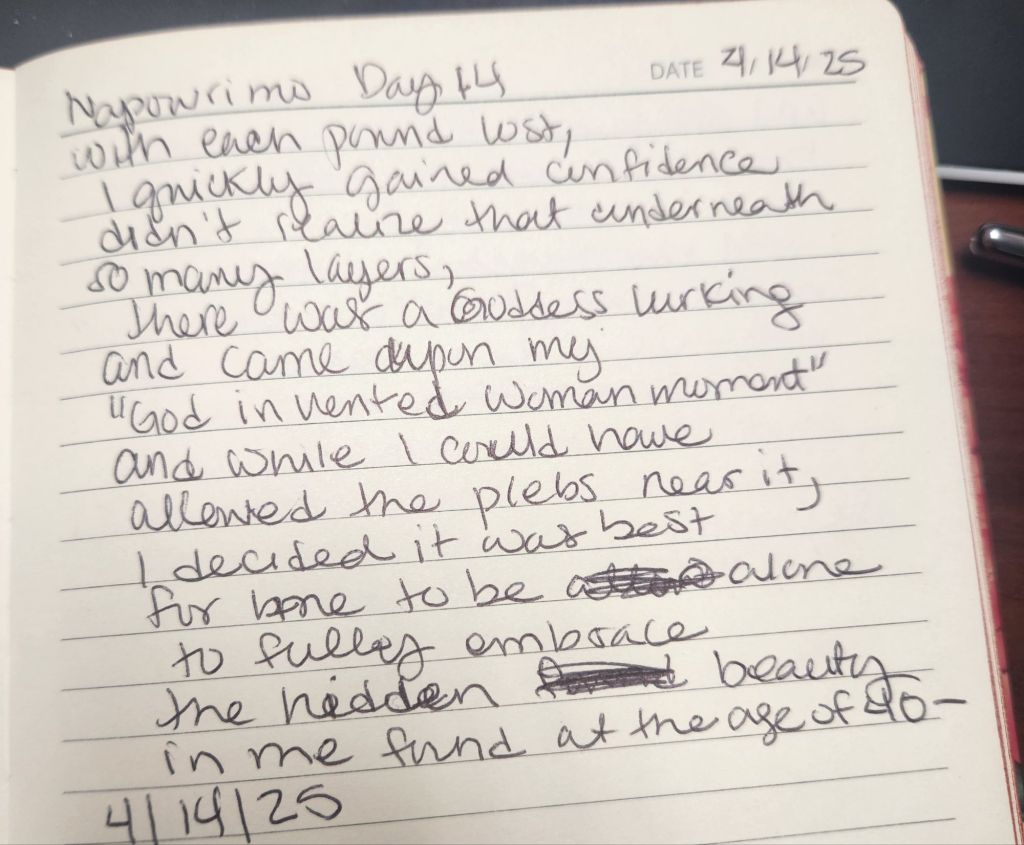 Napowrimo Day 14 DATE 4/14/25
with each pound lost,
I quickly gained confidence
didn't realize that underneath
so many layers,
there was a Goddess lurking
and came upon my
"God invented woman moment"
and while I could have
allowed the plebs near it,
I decided it was best
for to be alone
to fully embrace
the hidden beauty
in me found at the age of 40-
4/14/25